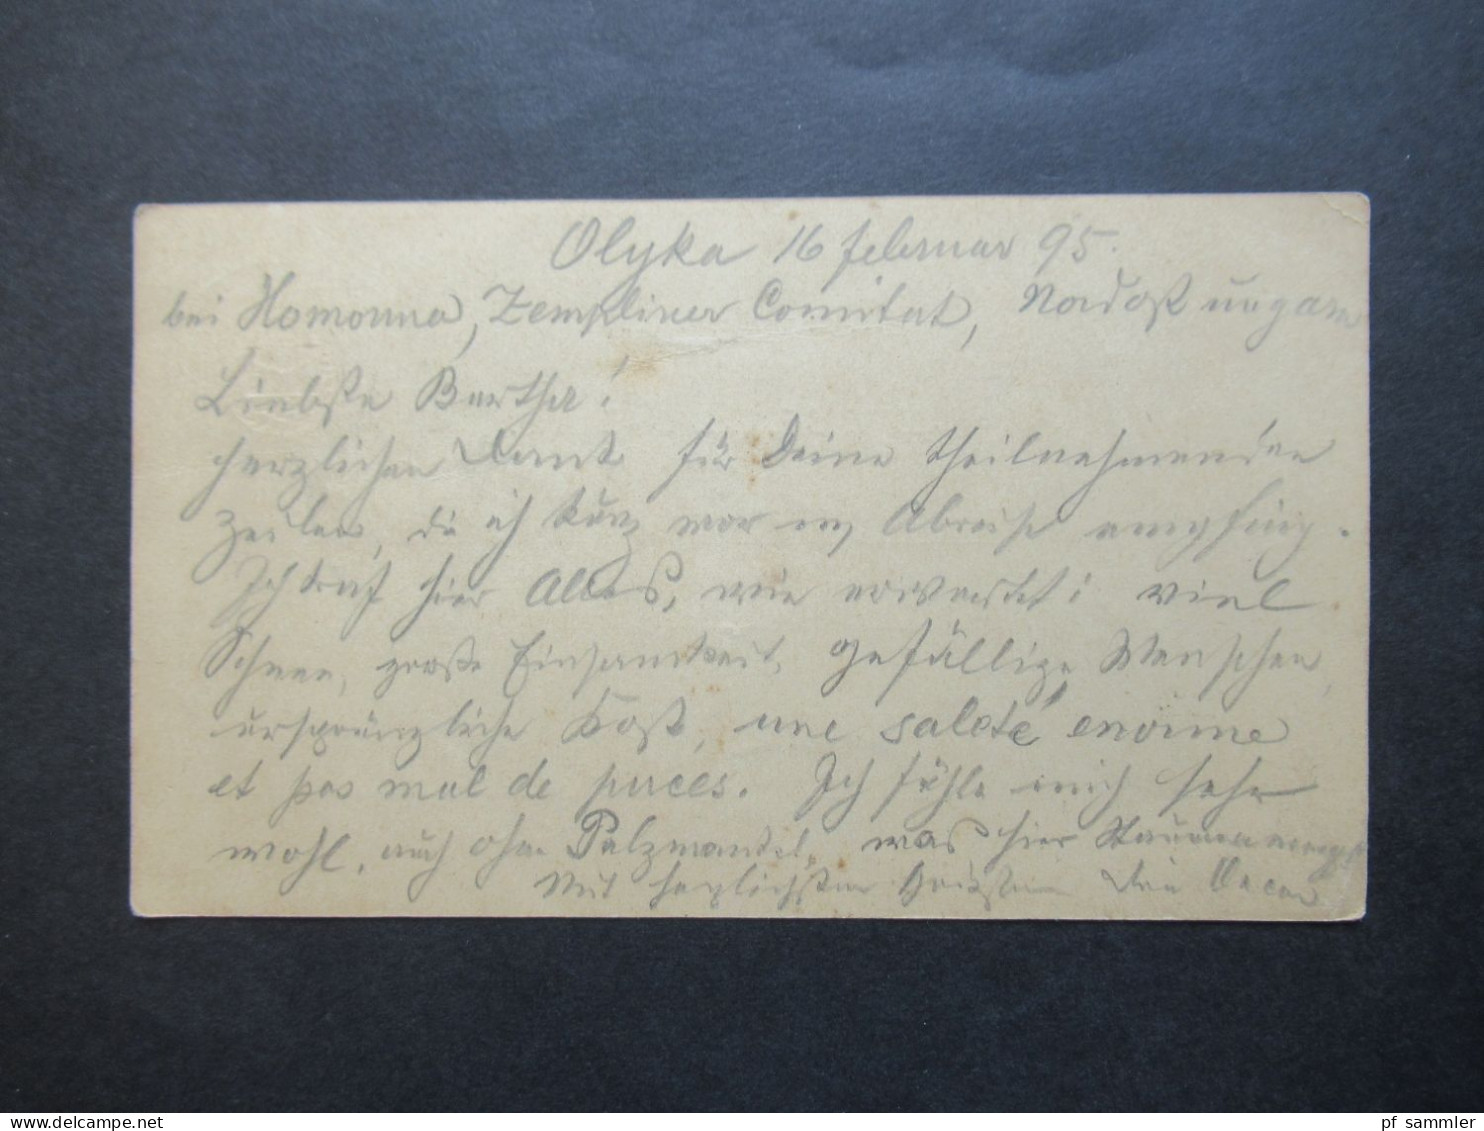 Olyka 16 februar 95.
bei Homonna, Zempliner Comitat, Nordostungarn
Liebste Bertha!
herzlichen Dank für Deine theilnehmenden
Zeilen, die ich kurz vor m. Abreise empfing.
Ich traf hier Alles, wie erwartet: viel
Schnee, große Einsamkeit, gefällige Menschen,
ursprüngliche Kost, une saleté énorme
et pas mal de puces. Ich fühle mich sehr
wohl, auch ohne Pelzmantel, was hier Staunen erregt.
Mit herzlichsten Grüßen Dein Oscar
www.delcampe.net
pf_sammler